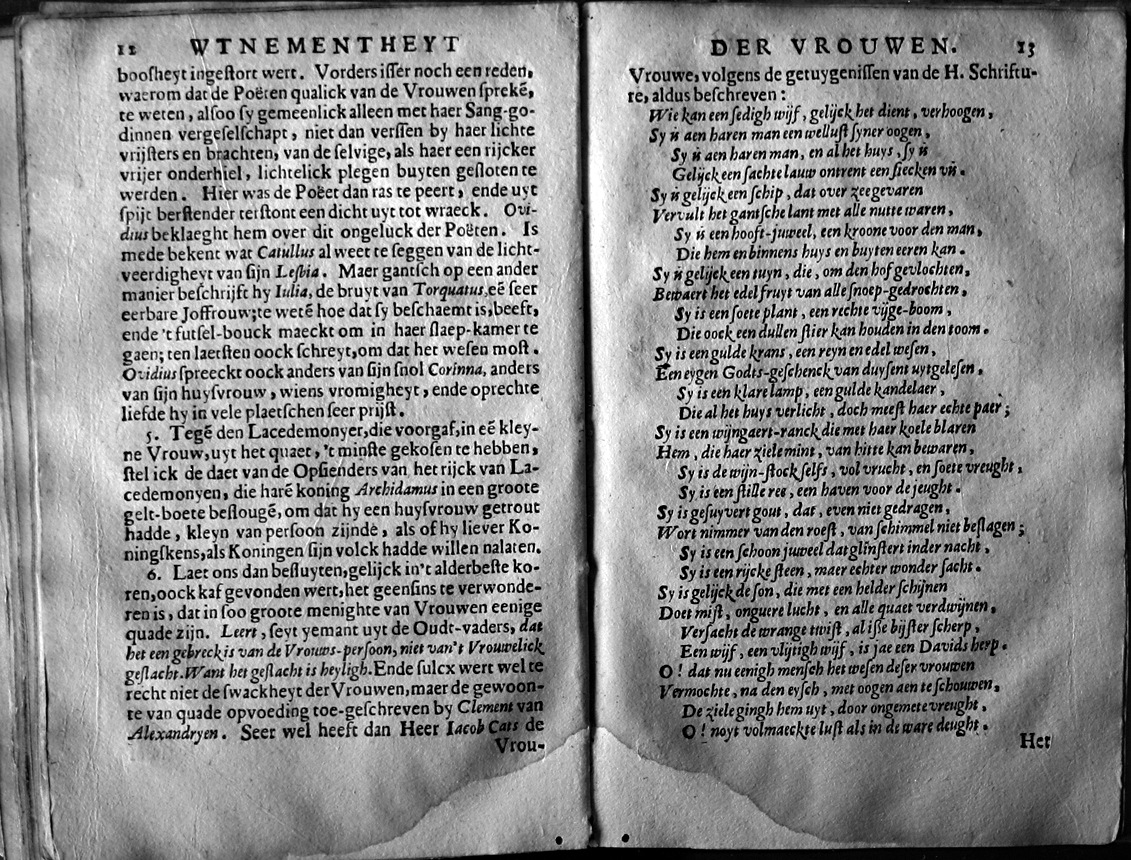 12 WTNEMENTHEYT
boosheyt ingestort wert. Vorders isser noch een reden,
waerom dat de Poëten qualick van de Vrouwen sprekē,
te weten, alsoo sy gemeenlick alleen met haer Sang-go-
dinnen vergeselschapt, niet dan verssen by haer lichte
vrijsters en brachten, van de selvige, als haer een rijcker
vrijer onderhiel, lichtelick plegen buyten gesloten te
werden. Hier was de Poëet dan ras te peert, ende uyt
spijt berstender terstont een dicht uyt tot wraeck. Ovi-
dius beklaeght hem over dit ongeluck der Poëten. Is
mede bekent wat Catullus al weet te seggen van de licht-
veerdigheyt van sijn Lesbia. Maer gantsch op een ander
manier beschrijft hy Iulia, de bruyt van Torquatus, eē seer
eerbare Joffrouw; te wetē hoe dat sy beschaemt is, beeft,
ende 't futsel-bouck maeckt om in haer slaep-kamer te
gaen; ten laetsten oock schreyt, om dat het wesen most.
Ovidius spreeckt oock anders van sijn snol Corinna, anders
van sijn huysvrouw, wiens vromigheyt, ende oprechte
liefde hy in vele plaetschen seer prijst.
5. Tegē den Lacedemonyer, die voorgaf, in eē kley-
ne Vrouw, uyt het quaet, 't minste gekosen te hebben,
stel ick de daet van de Opsienders van het rijck van La-
cedemonyen, die harē koning Archidamus in een groote
gelt-boete beslougē, om dat hy een huysvrouw getrout
hadde, kleyn van persoon zijnde, als of hy liever Ko-
ningskens, als Koningen sijn volck hadde willen nalaten.
6. Laet ons dan besluyten, gelijck in 't alderbeste ko-
ren, oock kaf gevonden wert, het geensins te verwonde-
ren is, dat in soo groote menighte van Vrouwen eenige
quade zijn. Leert, seyt yemant uyt de Oudt-vaders, dat
het een gebreck is van de Vrouws-persoon, niet van 't Vrouwelick
geslacht. Want het geslacht is heyligh. Ende sulcx wert wel te
recht niet de swackheyt der Vrouwen, maer de gewoon-
te van quade opvoeding toe-geschreven by Clement van
Alexandryen. Seer wel heeft dan Heer Iacob Cats de
Vrou-
DER VROUWEN. 13
Vrouwe, volgens de getuygenissen van de H. Schriftu-
re, aldus beschreven:
Wie kan een sedigh wijf, gelijck het dient, verhoogen,
Sy is aen haren man een wellust syner oogen,
Sy is aen haren man, en al het huys, sy is
Gelijck een sachte lauw ontrent een siecken vis.
Sy is gelijck een schip, dat over zee gevaren
Vervult het gantsche lant met alle nutte waren,
Sy is een hooft-juweel, een kroone voor den man,
Die hem en binnens huys en buyten eeren kan.
Sy is gelijck een tuyn, die, om den hof gevlochten,
Bewaert het edel fruyt van alle snoep-gedrochten,
Sy is een soete plant, een rechte vijge-boom,
Die oock een dullen stier kan houden in den toom.
Sy is een gulde krans, een reyn en edel wesen,
Een eygen Godts-geschenck van duysent uytgelesen,
Sy is een klare lamp, een gulde kandelaer,
Die al het huys verlicht, doch meest haer echte paer;
Sy is een wijngaert-ranck die met haer koele blaren
Hem, die haer ziele mint, van hitte kan bewaren,
Sy is de wijn-stock selfs, vol vrucht, en soete vreught,
Sy is een stille ree, een haven voor de jeught.
Sy is gesuyvert gout, dat, even niet gedragen,
Wort nimmer van den roest, van schimmel niet beslagen;
Sy is een schoon juweel dat glinstert inder nacht,
Sy is een rijcke steen, maer echter wonder sacht.
Sy is gelijck de son, die met een helder schijnen
Doet mist, onguere lucht, en alle quaet verdwijnen,
Versacht de wrange twist, al isse bijster scherp,
Een wijf, een vlijtigh wijf, is jae een Davids herp.
O! dat nu eenigh mensch het wesen deser vrouwen
Vermochte, na den eysch, met oogen aen te schouwen,
De ziele gingh hem uyt, door ongemete vreught,
O! noyt volmaeckte lust als in de ware deught.
Het